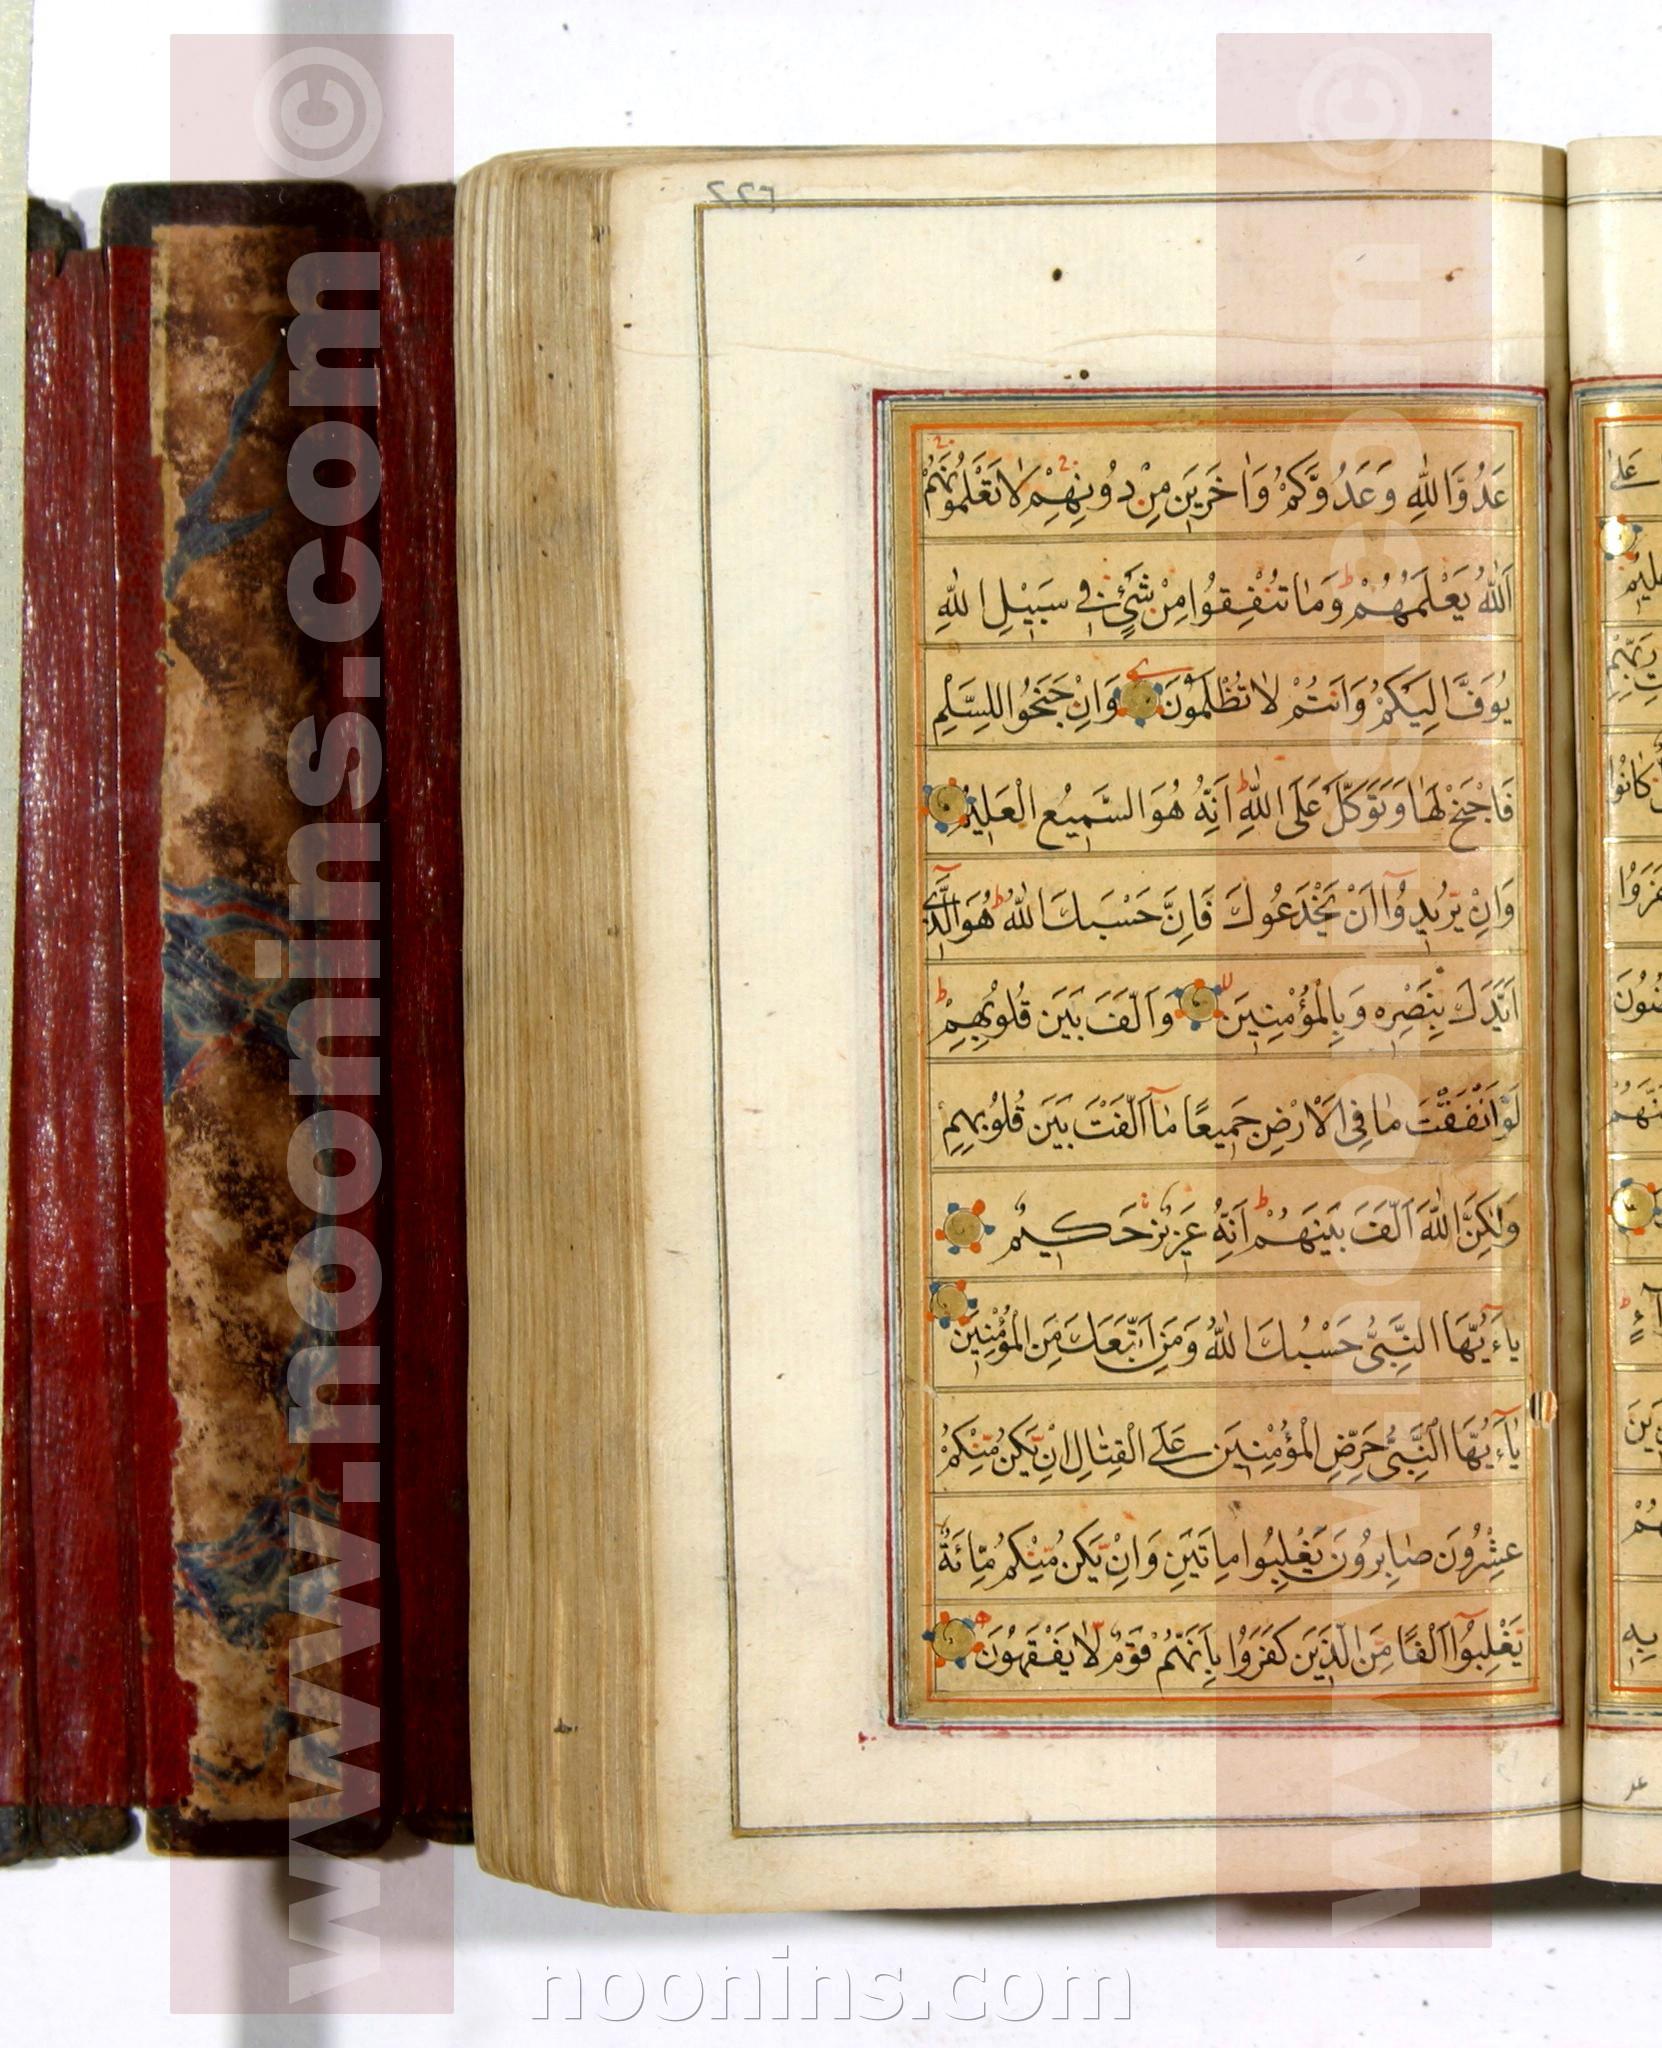 عَدُوَّ اللّٰهِ وَعَدُوَّكُمْ وَاٰخَرِينَ مِنْ دُونِهِمْ لَا تَعْلَمُونَهُمْ
اَللّٰهُ يَعْلَمُهُمْ وَمَا تُنْفِقُوا مِنْ شَيْءٍ فِي سَبِيْلِ اللّٰهِ
يُوَفَّ اِلَيْكُمْ وَاَنْتُمْ لَا تُظْلَمُونَ وَاِنْ جَنَحُوا لِلسَّلْمِ
فَاجْنَحْ لَهَا وَتَوَكَّلْ عَلَى اللّٰهِ اِنَّهُ هُوَ السَّمِيعُ الْعَلِيمُ
وَاِنْ يُرِيدُوآ اَنْ يَخْدَعُوكَ فَاِنَّ حَسْبَكَ اللّٰهُ هُوَ الَّذِيٓ
اَيَّدَكَ بِنَصْرِهِ وَبِالْمُؤْمِنِينَ وَاَلَّفَ بَيْنَ قُلُوبِهِمْ
لَوْ اَنْفَقْتَ مَا فِي الْاَرْضِ جَمِيعًا مَآ اَلَّفْتَ بَيْنَ قُلُوبِهِمْ
وَلٰكِنَّ اللّٰهَ اَلَّفَ بَيْنَهُمْ اِنَّهُ عَزِيزٌ حَكِيمٌ
يآءَيُّهَا النَّبِيُّ حَسْبُكَ اللّٰهُ وَمَنِ اتَّبَعَكَ مِنَ الْمُؤْمِنِينَ
يآءَيُّهَا النَّبِيُّ حَرِّضِ الْمُؤْمِنِينَ عَلَى الْقِتَالِ اِنْ يَكُنْ مِنْكُمْ
عِشْرُونَ صَابِرُونَ يَغْلِبُوا مِاتَيْنِ وَاِنْ يَكُنْ مِنْكُمْ مِائَةٌ
يَغْلِبُوآ اَلْفًا مِنَ الَّذِينَ كَفَرُوا بِاَنَّهُمْ قَوْمٌ لَا يَفْقَهُونَ
www.noonins.com ©
www.noonins.com ©
noonins.com